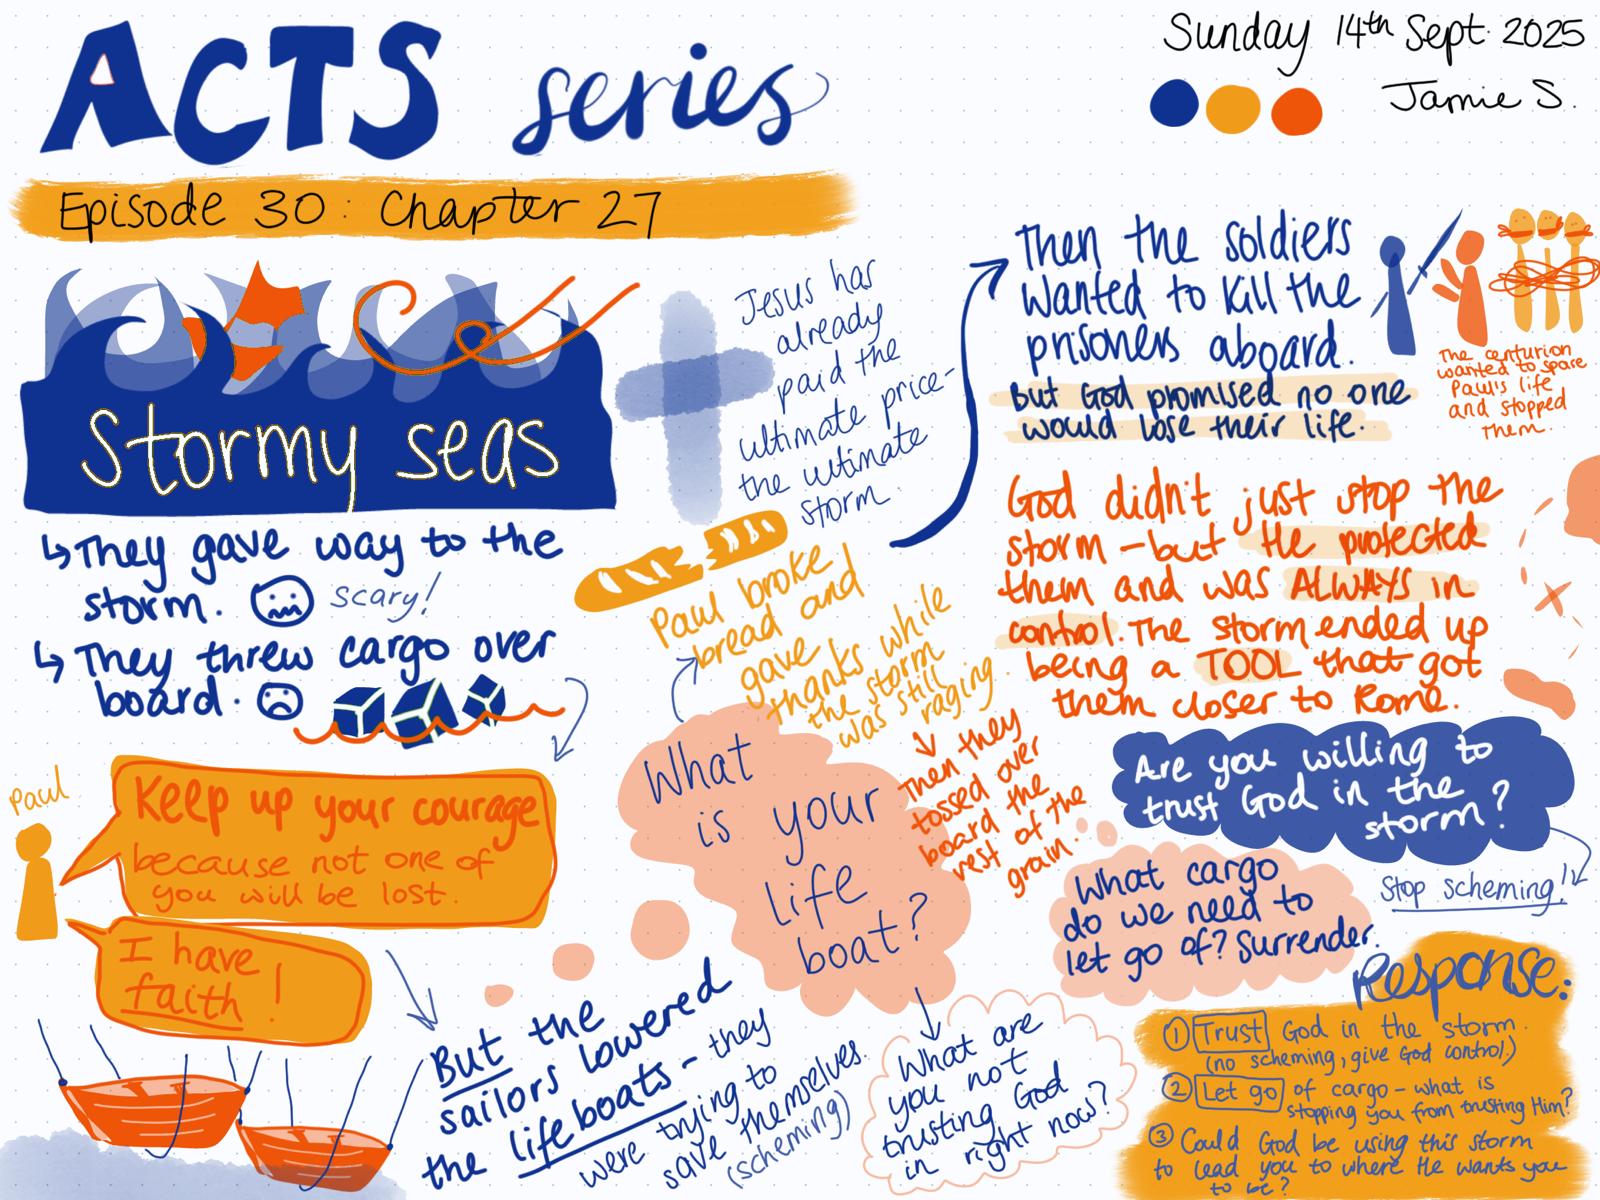 ACTS series
Sunday 14th Sept 2025
Jamie S.
Episode 30 : Chapter 27
Stormy seas
↳ They gave way to the
storm. scary!
↳ They threw cargo over
board.
Paul
Keep up your courage
because not one of
you will be lost.
I have
faith!
But the
sailors lowered
the lifeboats - they
were trying to
save themselves.
(scheming)
What
is your
life
boat?
What are
you not
trusting God
in right now?
Paul broke
bread and
gave
thanks while
the storm
was still
raging
Then they
tossed over
board the
rest of the
grain.
Jesus has
already
paid the
ultimate price-
the ultimate
storm
Then the soldiers
wanted to kill the
prisoners aboard.
But God promised no one
would lose their life.
The centurion
wanted to spare
Paul's life
and stopped
them.
God didn't just stop the
storm - but He protected
them and was ALWAYS in
control. The storm ended up
being a TOOL that got
them closer to Rome.
Are you willing to
trust God in the
storm?
Stop scheming!
What cargo
do we need to
let go of? Surrender.
Response:
① Trust God in the storm.
(no scheming, give God control.)
② Let go of cargo - what is
stopping you from trusting Him?
③ Could God be using this storm
to lead you to where He wants you
to be?